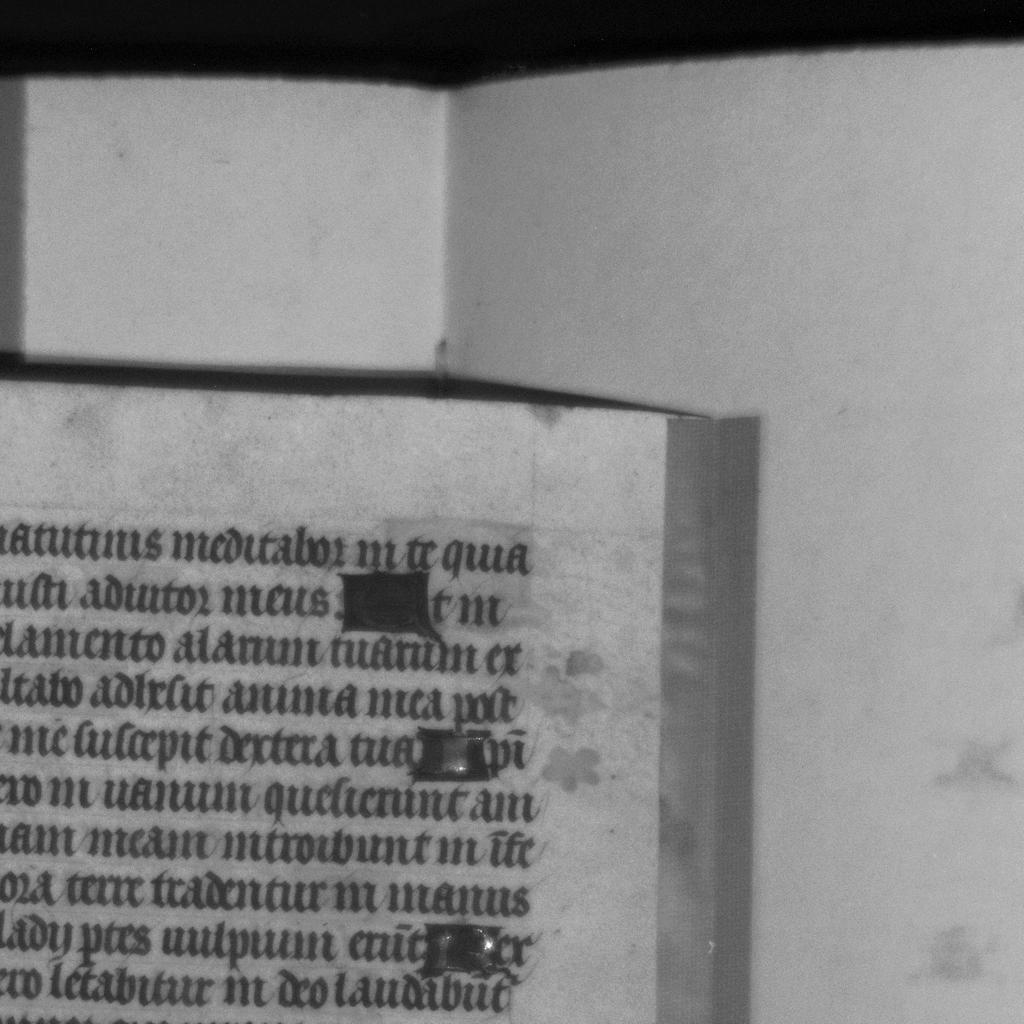 matutinis meditabor in te quia
adiutor meus t in
alarum tuarum ex
ltabo adhesit anima mea post
me suscepit dextera tua pi
in uanum quesierunt ani
meam introibunt in ife
ora terre tradentur in manus
ladij ptes uulpium erut ex
letabitur in deo laudabut